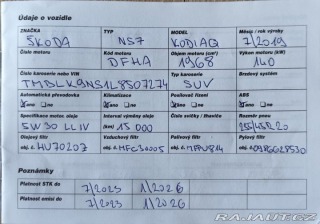 Údaje o vozidle
ZNAČKA TYP MODEL Měsíc / rok výroby
ŠKODA NS7 KODIAQ 7/2019
Číslo motoru Kód motoru Objem motoru (cm³) Výkon motoru (kW)
DFHA 1968 140
Číslo karoserie nebo VIN Typ karoserie Brzdový systém
TMBLK9NS1L8507274 SUV
Automatická převodovka Klimatizace Posilovač řízení ABS
ano ne ano ne ano ne ano ne
Specifikace motor. oleje Interval výměny oleje Rozměr pneu
5W30 LL IV (km) 15 000 255/45R20
Olejový filtr Vzduchový filtr Palivový filtr Pylový filtr
obj. č. HU70207 obj. č.
Poznámky
Platnost STK do 7/2023 1/2026
Platnost emisí do 7/2023 1/2026
RAJAUT.CZ